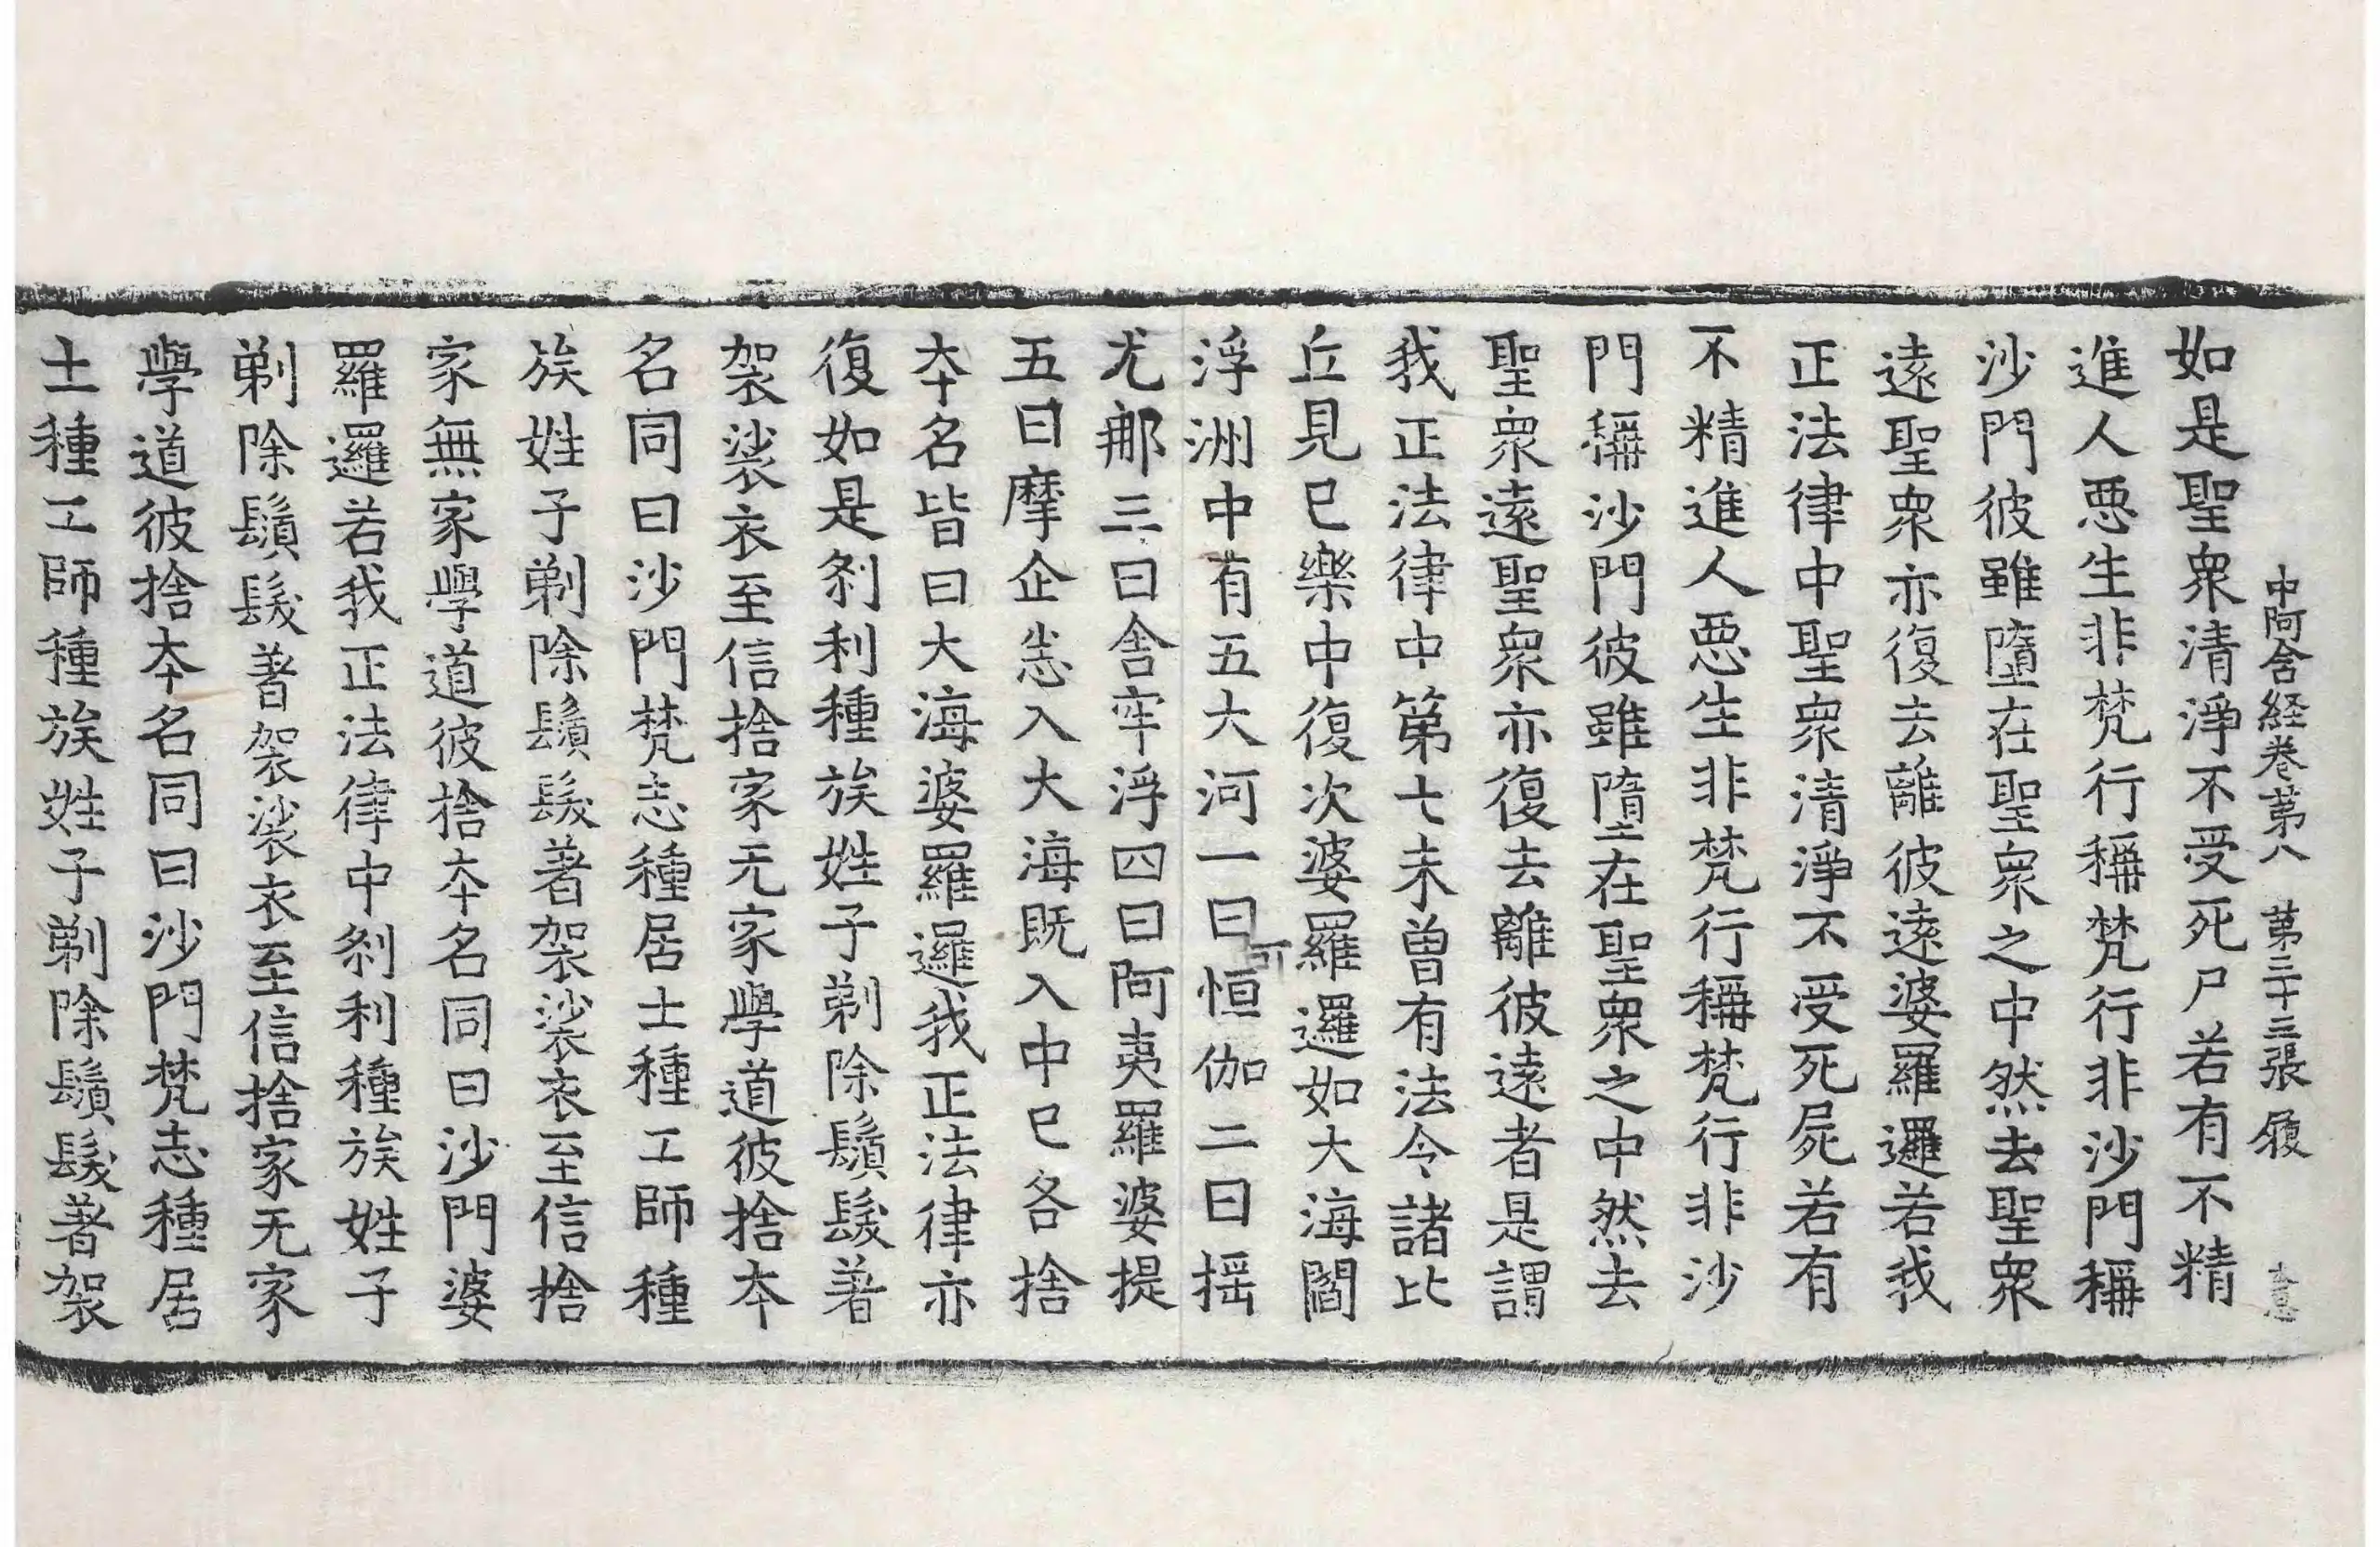 中阿含経卷苐八 苐三十三張 履
如是聖衆清淨不受死尸若有不精
進人惡生非梵行稱梵行非沙門稱
沙門彼雖墮在聖衆之中然去聖衆
遠聖衆亦復去離彼遠婆羅邏若我
正法律中聖衆清淨不受死屍若有
不精進人惡生非梵行稱梵行非沙
門稱沙門彼雖墮在聖衆之中然去
聖衆遠聖衆亦復去離彼遠者是謂
我正法律中第七未曾有法令諸比
丘見已樂中復次婆羅邏如大海閻
浮洲中有五大河一曰恒伽二曰揺
尤那三曰舎牢浮四曰阿夷羅婆提
五曰摩企悉入大海既入中已各捨
夲名皆曰大海婆羅邏我正法律亦
復如是剎利種族姓子剃除鬚髮著
袈裟衣至信捨家无家學道彼捨夲
名同曰沙門梵志種居士種工師種
族姓子剃除鬚髮著袈裟衣至信捨
家無家學道彼捨夲名同曰沙門婆
羅邏若我正法律中剎利種族姓子
剃除鬚髮著袈裟衣至信捨家无家
學道彼捨夲名同曰沙門梵志種居
士種工師種族姓子剃除鬚髮著袈